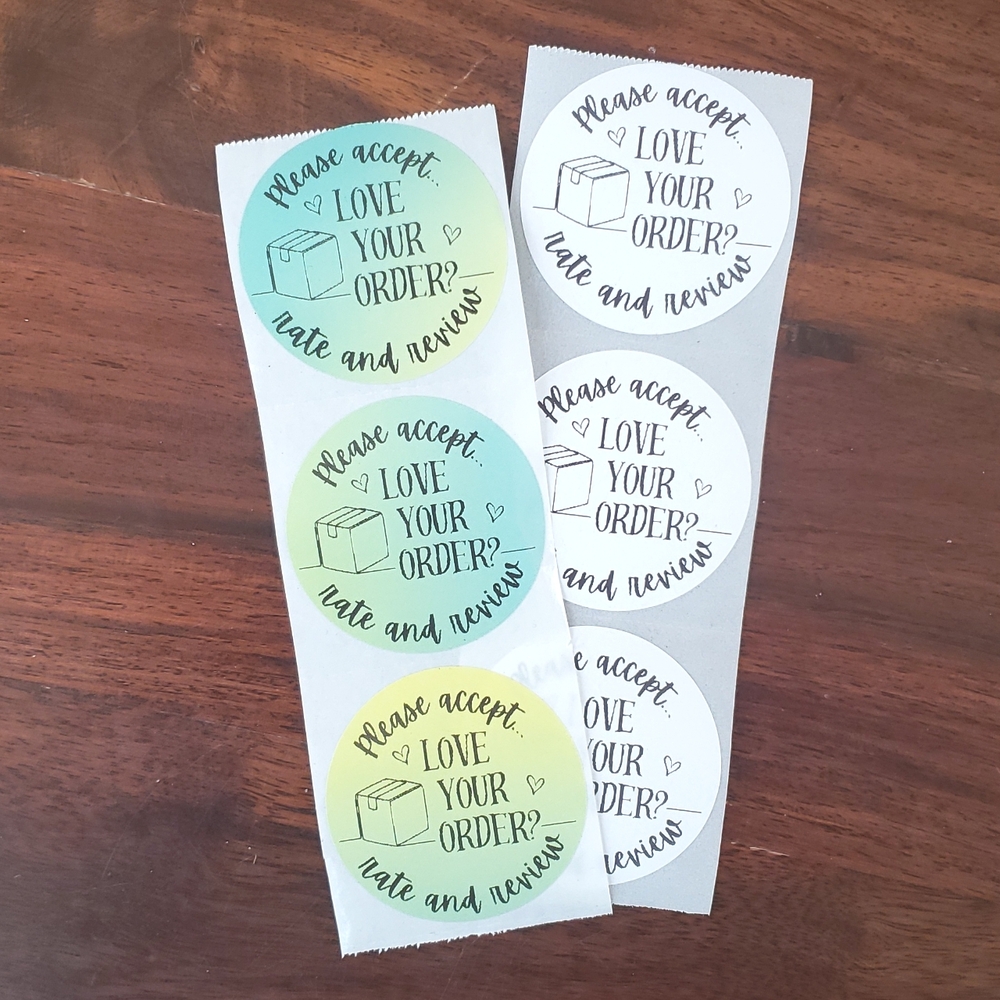 Please accept...
LOVE
YOUR
ORDER?
rate and review
Please accept...
LOVE
YOUR
ORDER?
rate and review
Please accept...
LOVE
YOUR
ORDER?
rate and review
Please accept...
LOVE
YOUR
ORDER?
rate and review
Please accept...
LOVE
YOUR
ORDER?
and review
accept...
OVE
YOUR
RDER?
review